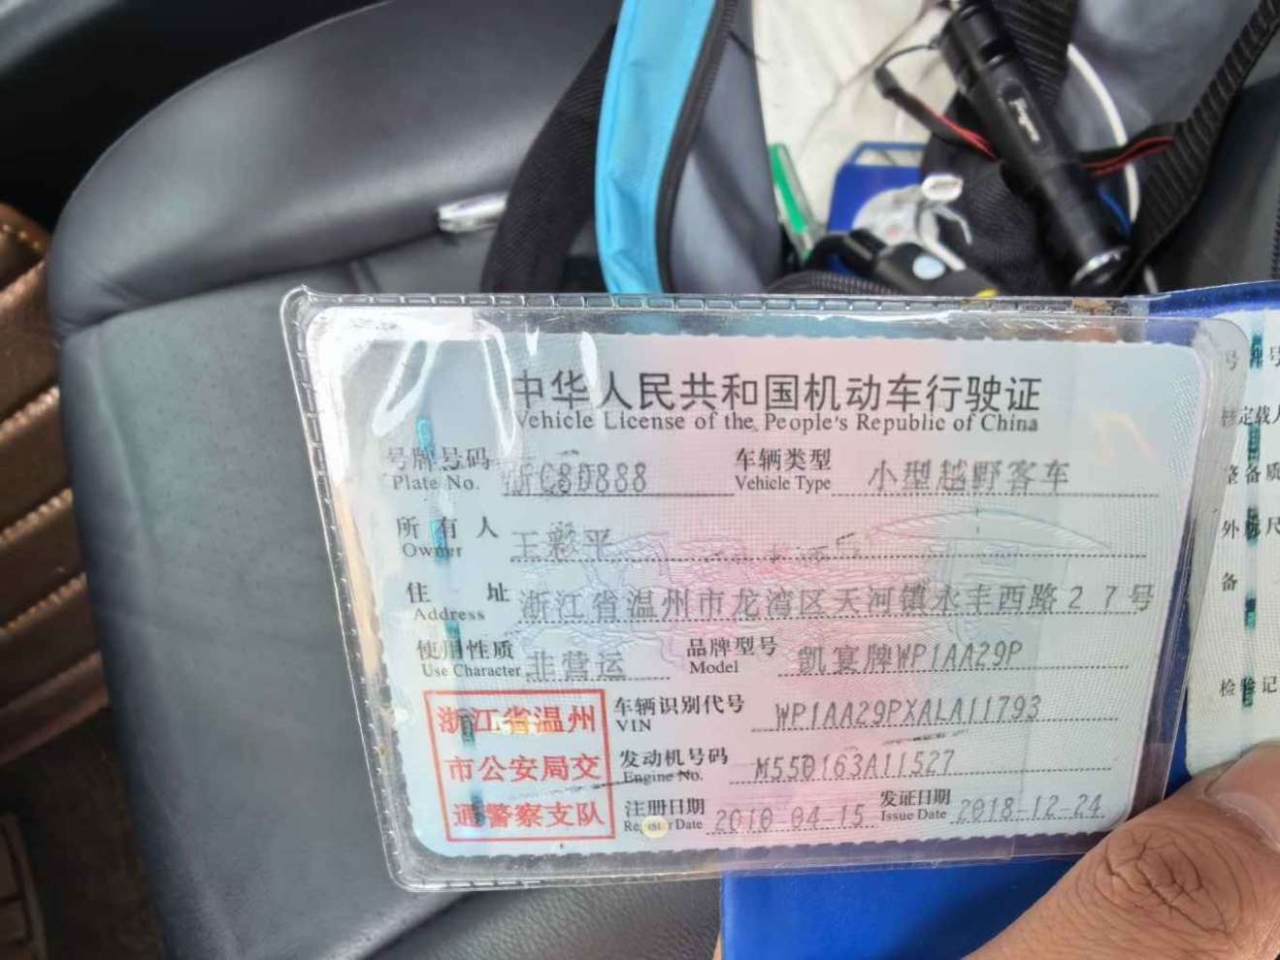 中华人民共和国机动车行驶证
Vehicle License of the People's Republic of China
号牌号码 车辆类型 小型越野客车
Plate No. C8D888 Vehicle Type
所有人 王彩平
Owner
住址 浙江省温州市龙湾区天河镇永丰西路27号
Address
使用性质 非营运 品牌型号 凯宴牌WP1AA29P
Use Character Model
浙江省温州
市公安局交
通警察支队
车辆识别代号 WP1AA29PXALA11793
VIN
发动机号码 M550163A11527
Engine No.
注册日期 2010-04-15 发证日期 2018-12-24
Register Date Issue Date
号
核定载人
整备质
外 尺
备
检验记